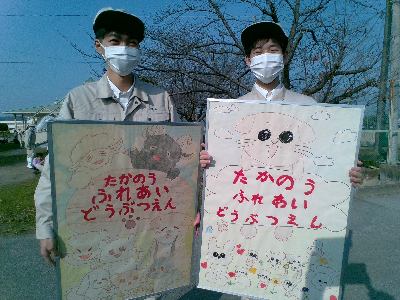 たかのう
ふれあい
どうぶつえん
たかのう
ふれあい
どうぶつえん